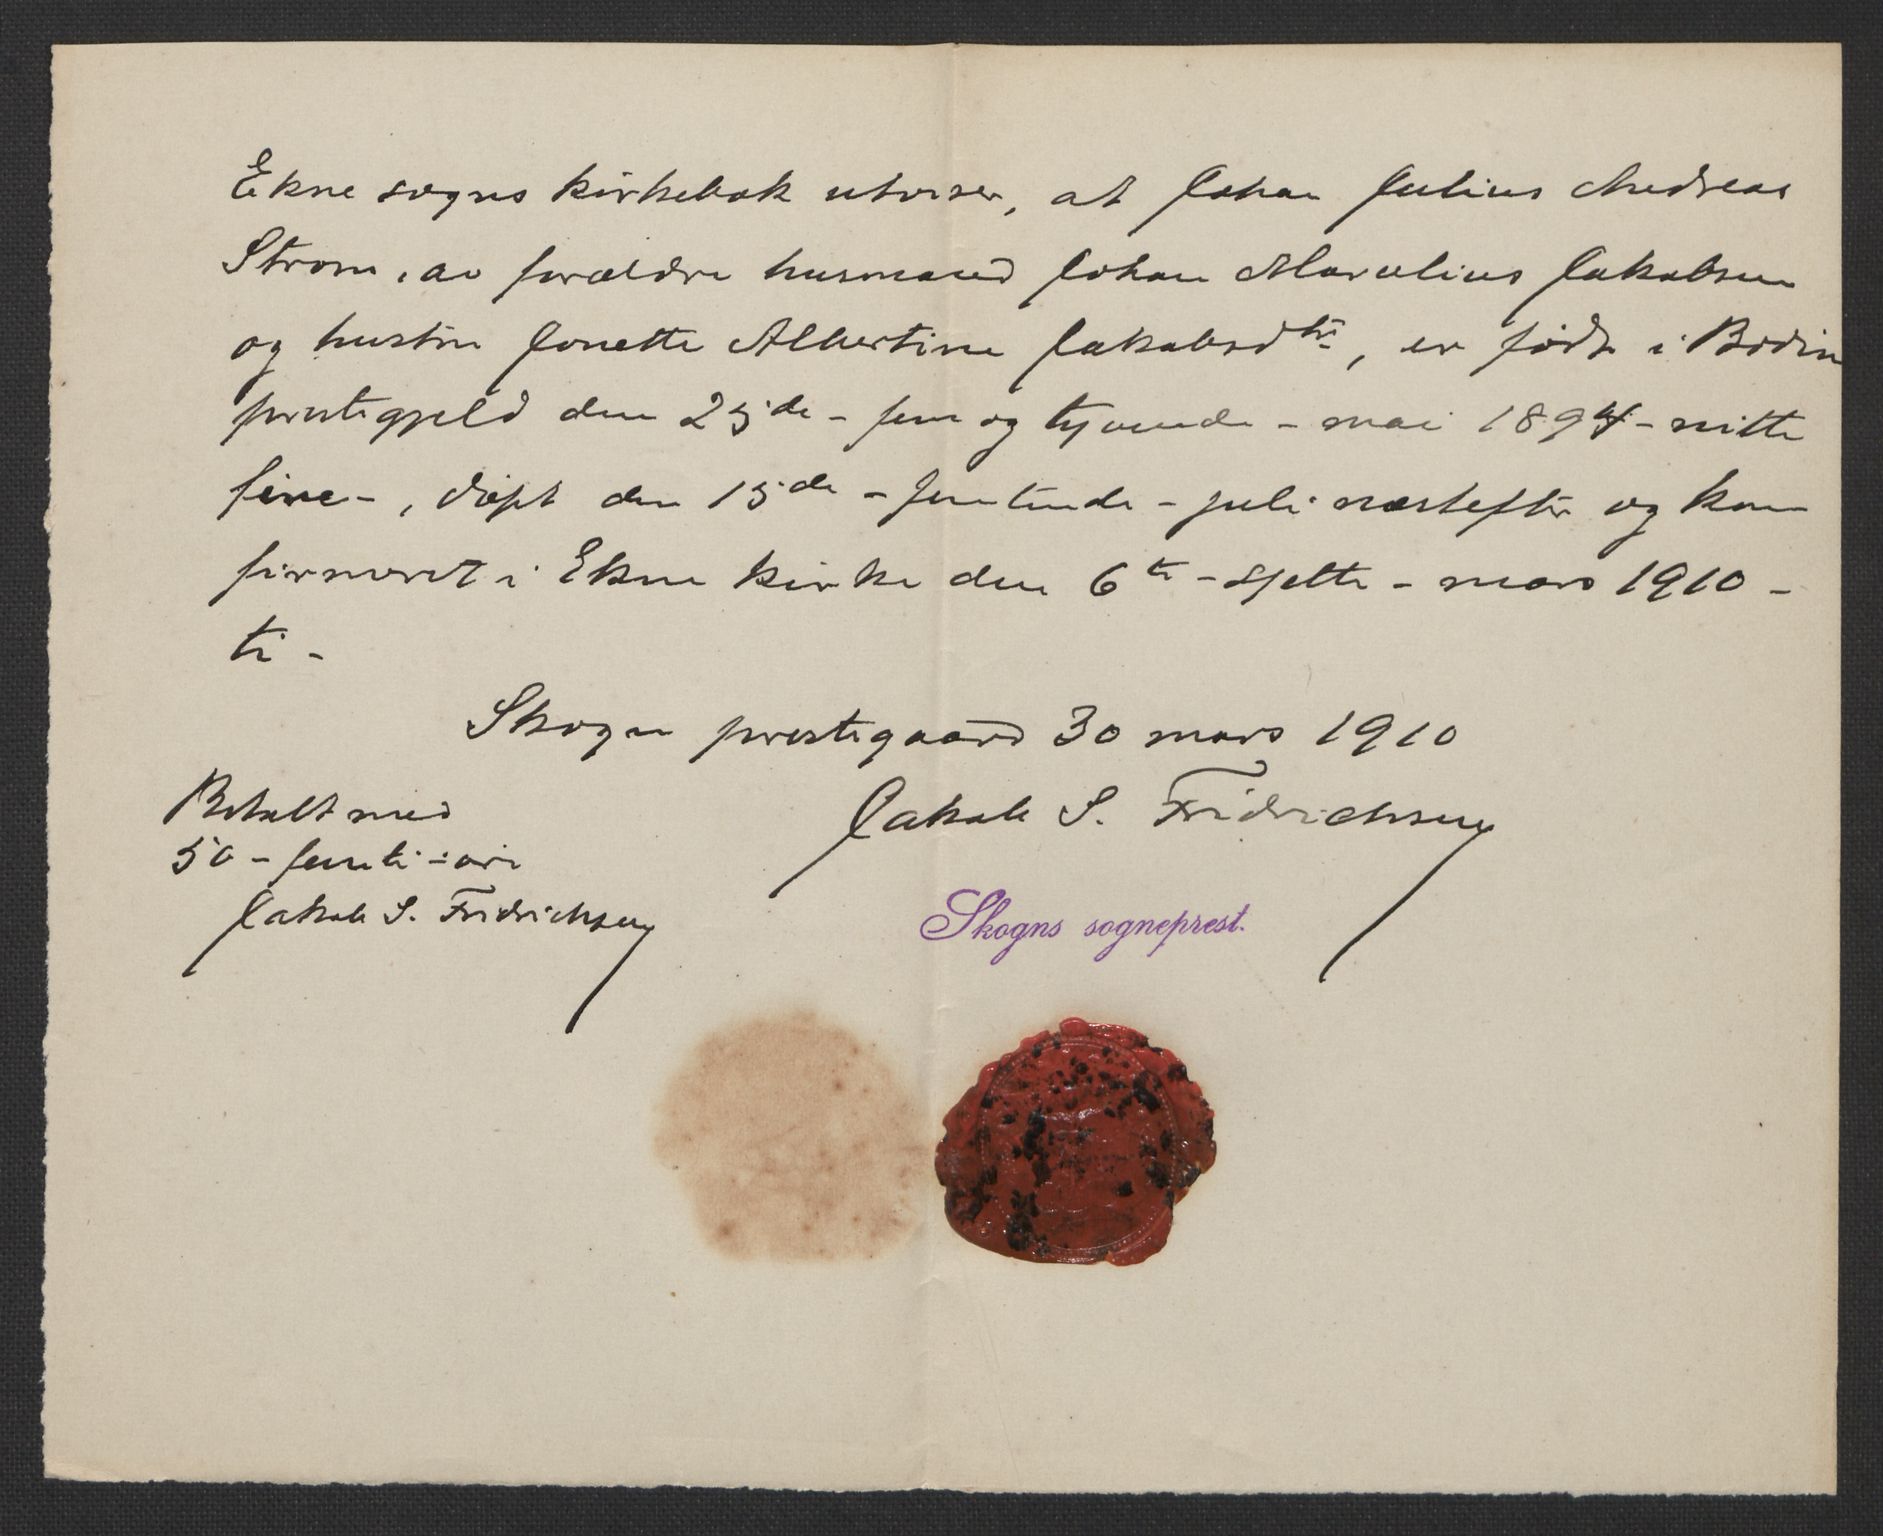 Ekne sogns kirkebok utviser, at Johan Julius Andreas
Strøm, av forældre husmand Johan Marelius Jakobsen
og hustru Jonette Albertine Jakobsdtr, er født i Bodin
prestegjeld den 25de - fem og tyvende - mai 1894 - nitti
fire -, døpt den 15de - femtende - juli næstefter og kon
firmeret i Ekne kirke den 6te - sjette - mars 1910 -
ti -
Skogn prestegaard 30 mars 1910
Jakob S. Fridrichsen
Skogns sogneprest.
Betalt med
50 - femti - øre
Jakob S. Fridrichsen